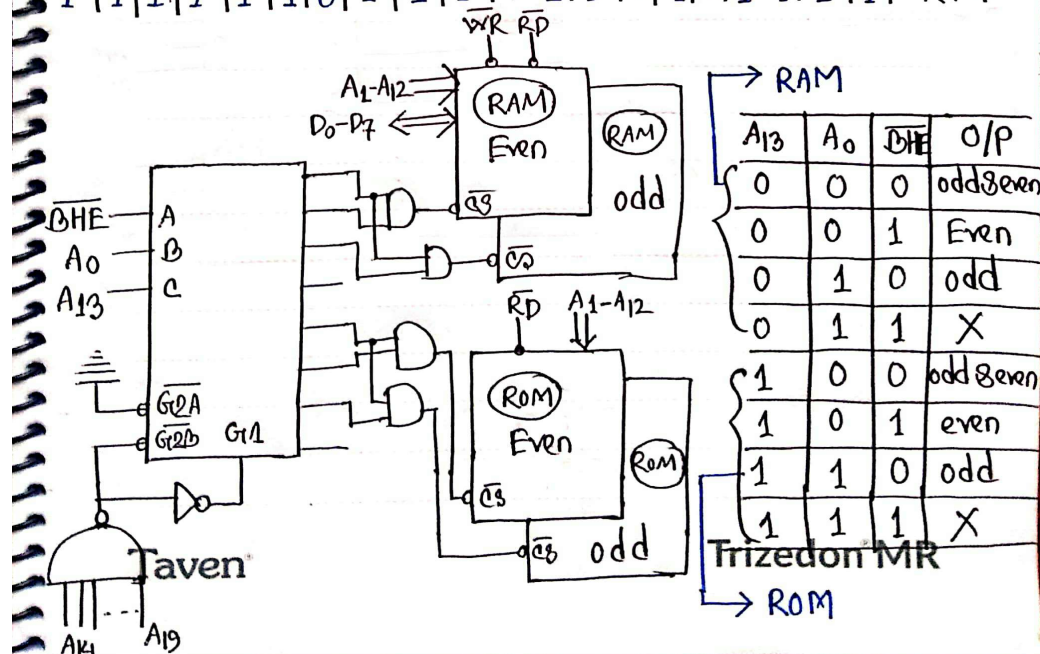 W̅R̅ R̅D̅
A1-A12
D0-D7
RAM
Even
C̅S̅
RAM
odd
C̅S̅
B̅H̅E̅ A
A0 B
A13 C
G̅2̅A̅
G̅2̅B̅ G1
A14 A19
R̅D̅ A1-A12
ROM
Even
C̅S̅
ROM
odd
C̅S̅
RAM
A13 A0 B̅H̅E̅ O/P
0 0 0 odd&even
0 0 1 Even
0 1 0 odd
0 1 1 X
1 0 0 odd&even
1 0 1 even
1 1 0 odd
1 1 1 X
ROM
Taven
Trizedon MR